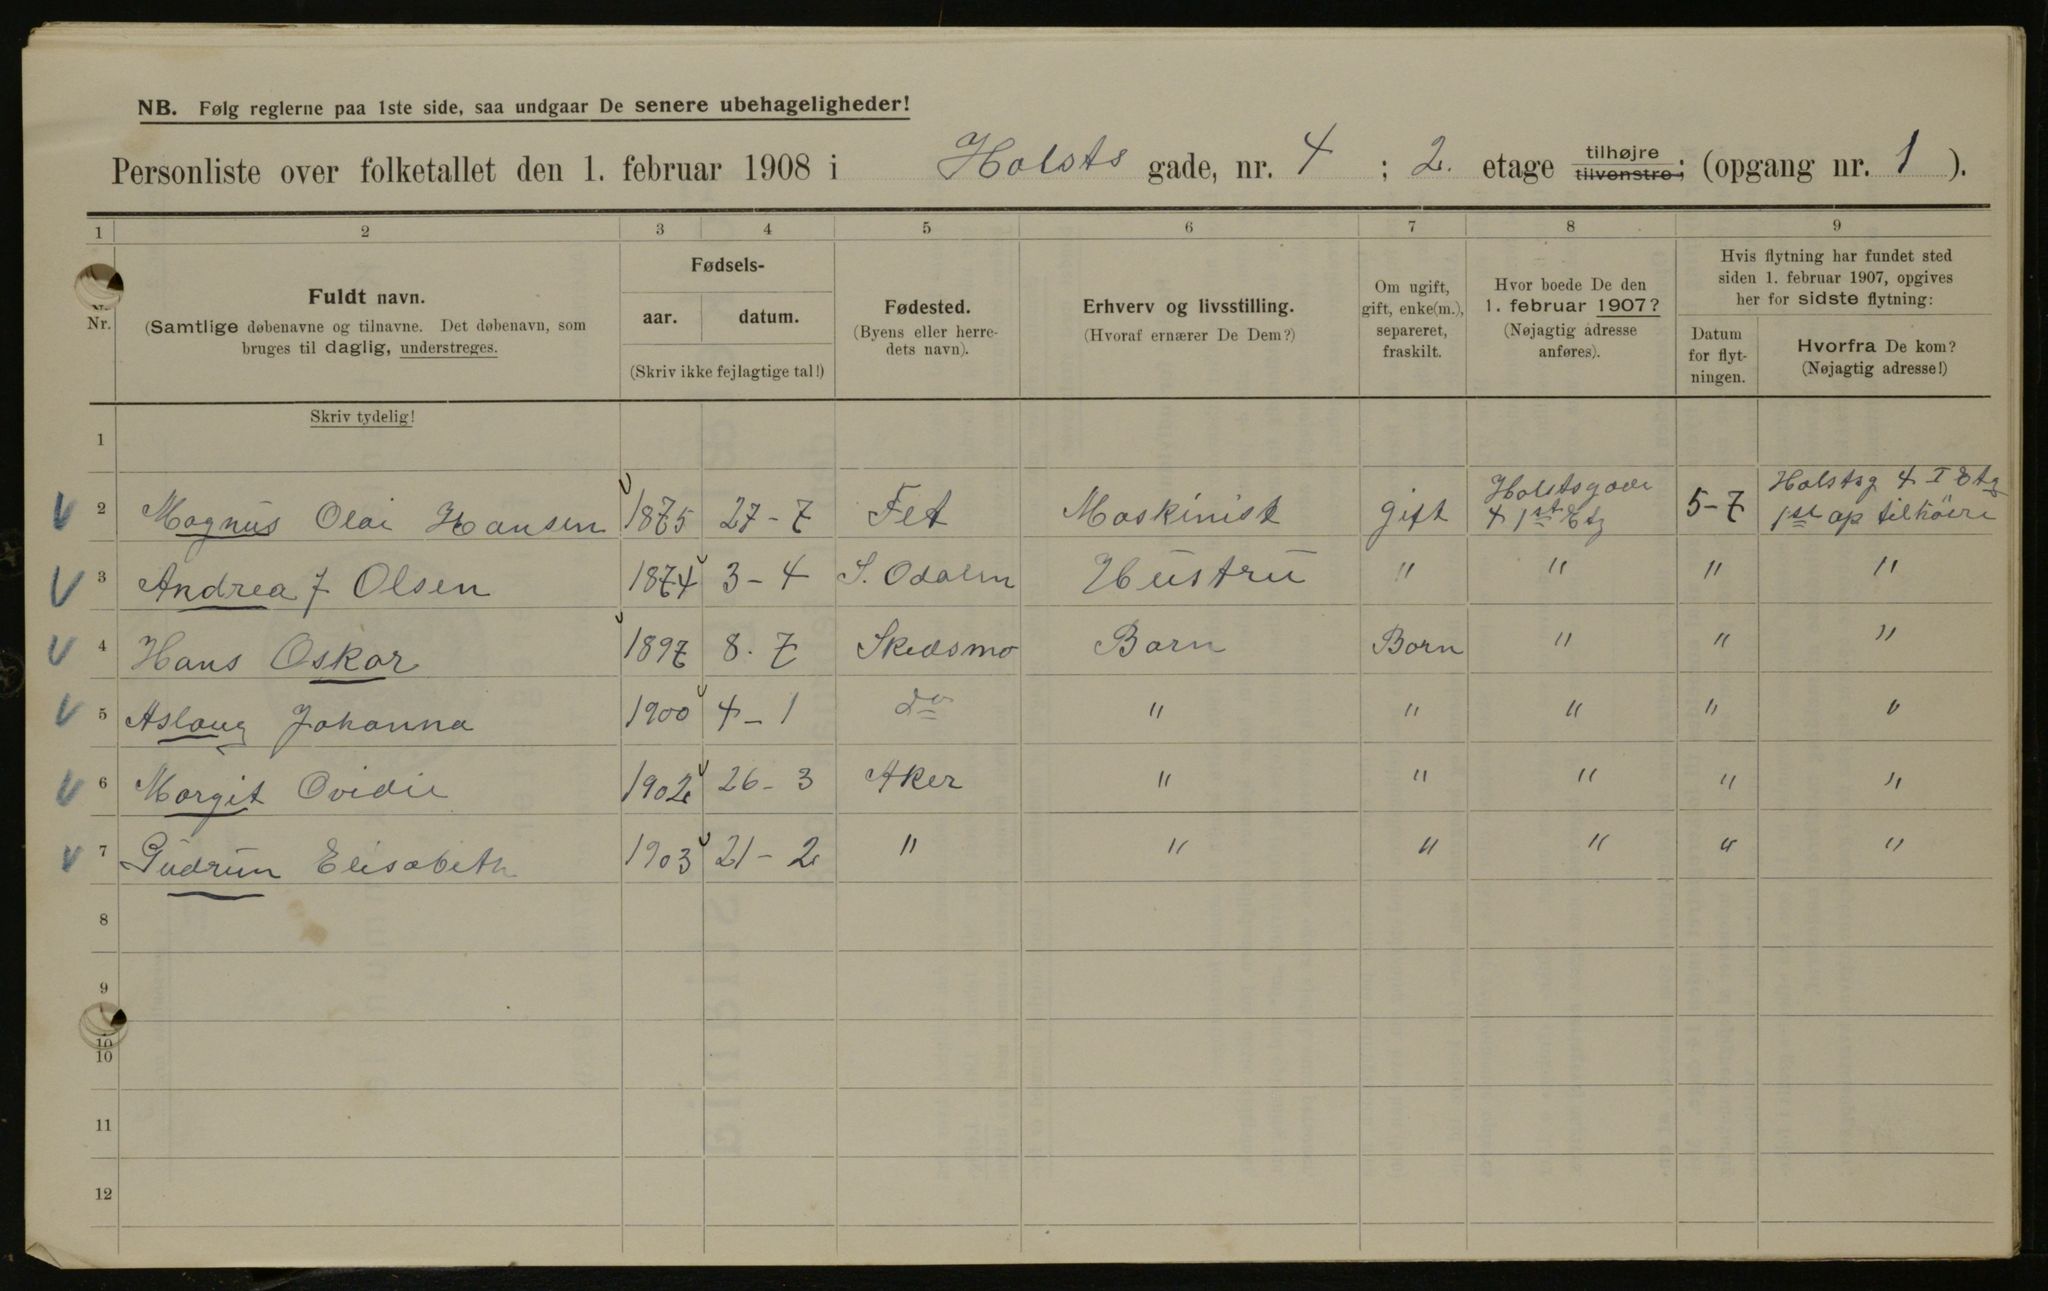 NB. Følg reglerne paa 1ste side, saa undgaar De senere ubehageligheder!
Personliste over folketallet den 1. februar 1908 i Holsts gade, nr. 4 ; 2. etage tilhøjre tilvenstre; (opgang nr. 1 ).
1 2 3 4 5 6 7 8 9
Nr.
Fuldt navn.
(Samtlige døbenavne og tilnavne. Det døbenavn, som
bruges til daglig, understreges.
Skriv tydelig!
Fødsels-
aar. datum.
(Skriv ikke fejlagtige tal!)
Fødested.
(Byens eller herre-
dets navn).
Erhverv og livsstilling.
(Hvoraf ernærer De Dem?)
Om ugift,
gift, enke(m.),
separeret,
fraskilt.
Hvor boede De den
1. februar 1907?
(Nøjagtig adresse
anføres).
Hvis flytning har fundet sted
siden 1. februar 1907, opgives
her for sidste flytning:
Datum
for flyt-
ningen.
Hvorfra De kom?
(Nøjagtig adresse!)
1
2 Magnus Olai Hansen 1875 27-7 Fet Maskinist gift Holstsgade 4 1st Etg 5-7 Holstsg 4 I Etg 1ste op tilhöire
3 Andrea J Olsen 1874 3-4 S. Odalen Hustru " " " "
4 Hans Oskar 1897 8.7 Skedsmo Barn Barn " " "
5 Aslaug Johanna 1900 4-1 do " " " " "
6 Margit Ovidie 1902 26-3 Aker " " " " "
7 Gudrun Elisabeth 1903 21-2 " " " " " "
8
9
10
10
11
12